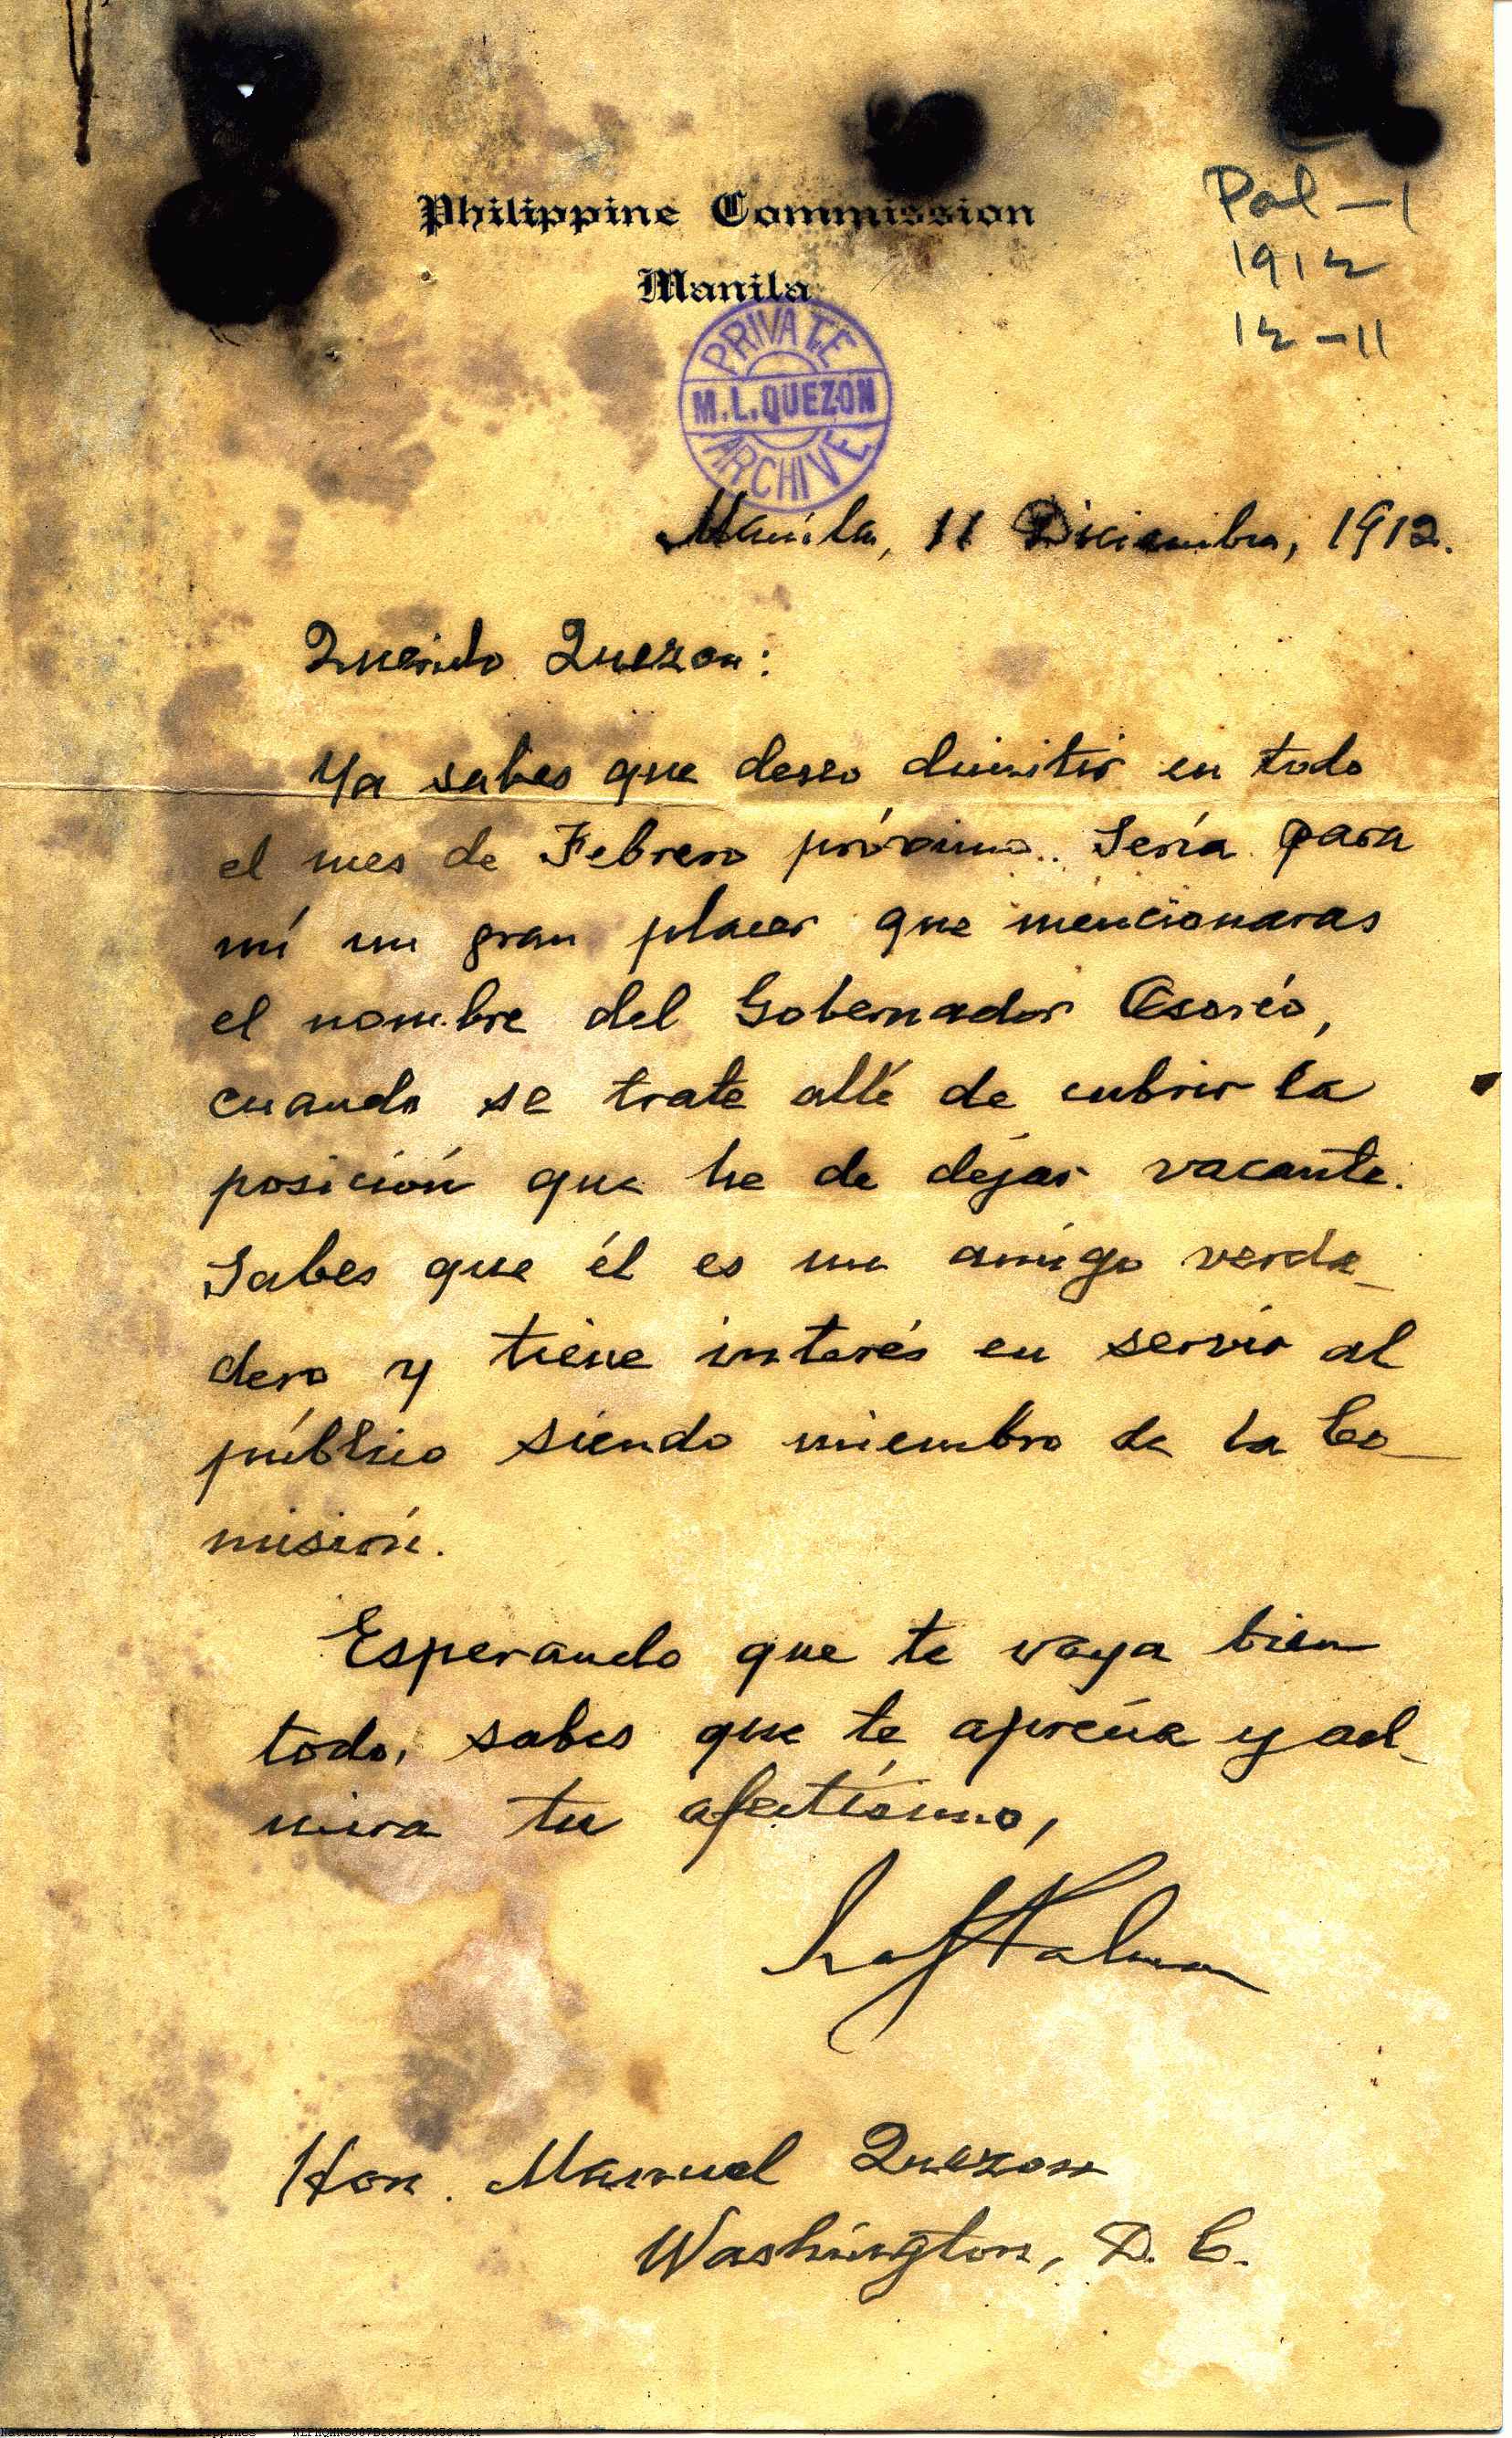 Philippine Commission
Manila
Pal-1
1912
12-11
PRIVATE
M.L.QUEZON
ARCHIVE
Manila, 11 Diciembre, 1912.
Querido Quezon:
Ya sabes que deseo dimitir en todo
el mes de Febrero próximo. Sería para
mí un gran placer que mencionaras
el nombre del Gobernador Osorio,
cuando se trate allí de cubrir la
posición que he de dejar vacante.
Sabes que él es un amigo verda-
dero y tiene interés en servir al
público siendo miembro de la Co-
misión.
Esperando que te vaya bien
todo, sabes que te aprecia y ad-
mira tu afectísimo,
Raf Palma
Hon. Manuel Quezon
Washington, D. C.
National Library of the Philippines